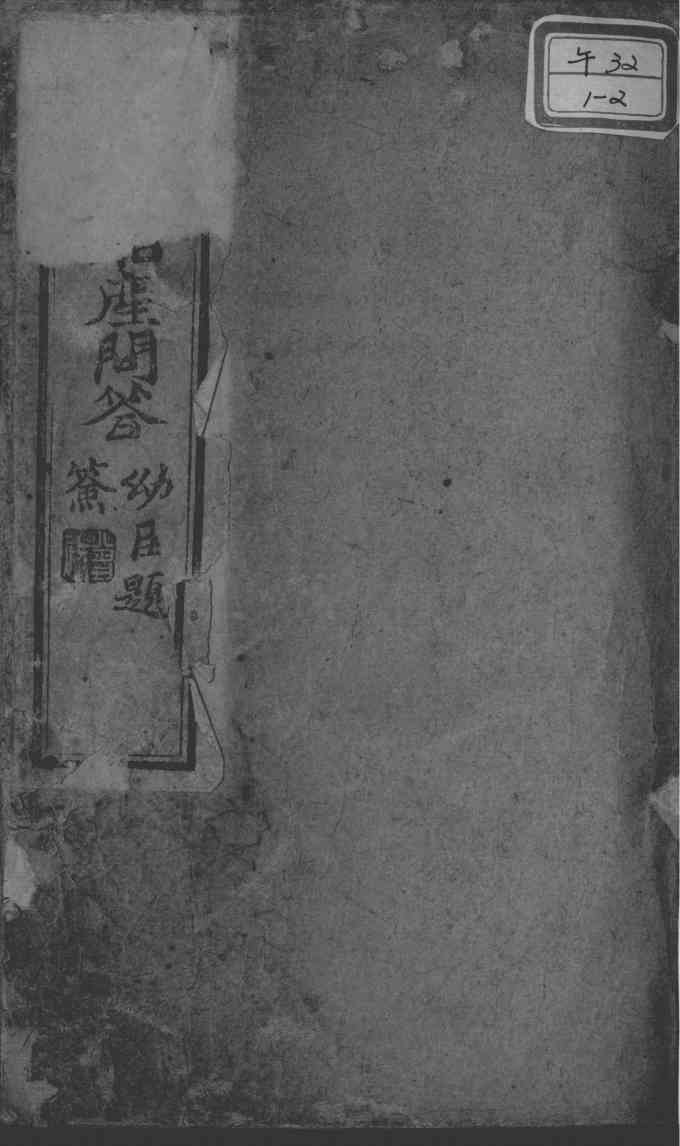 午32
1-2
產問答
幼臣題
簽